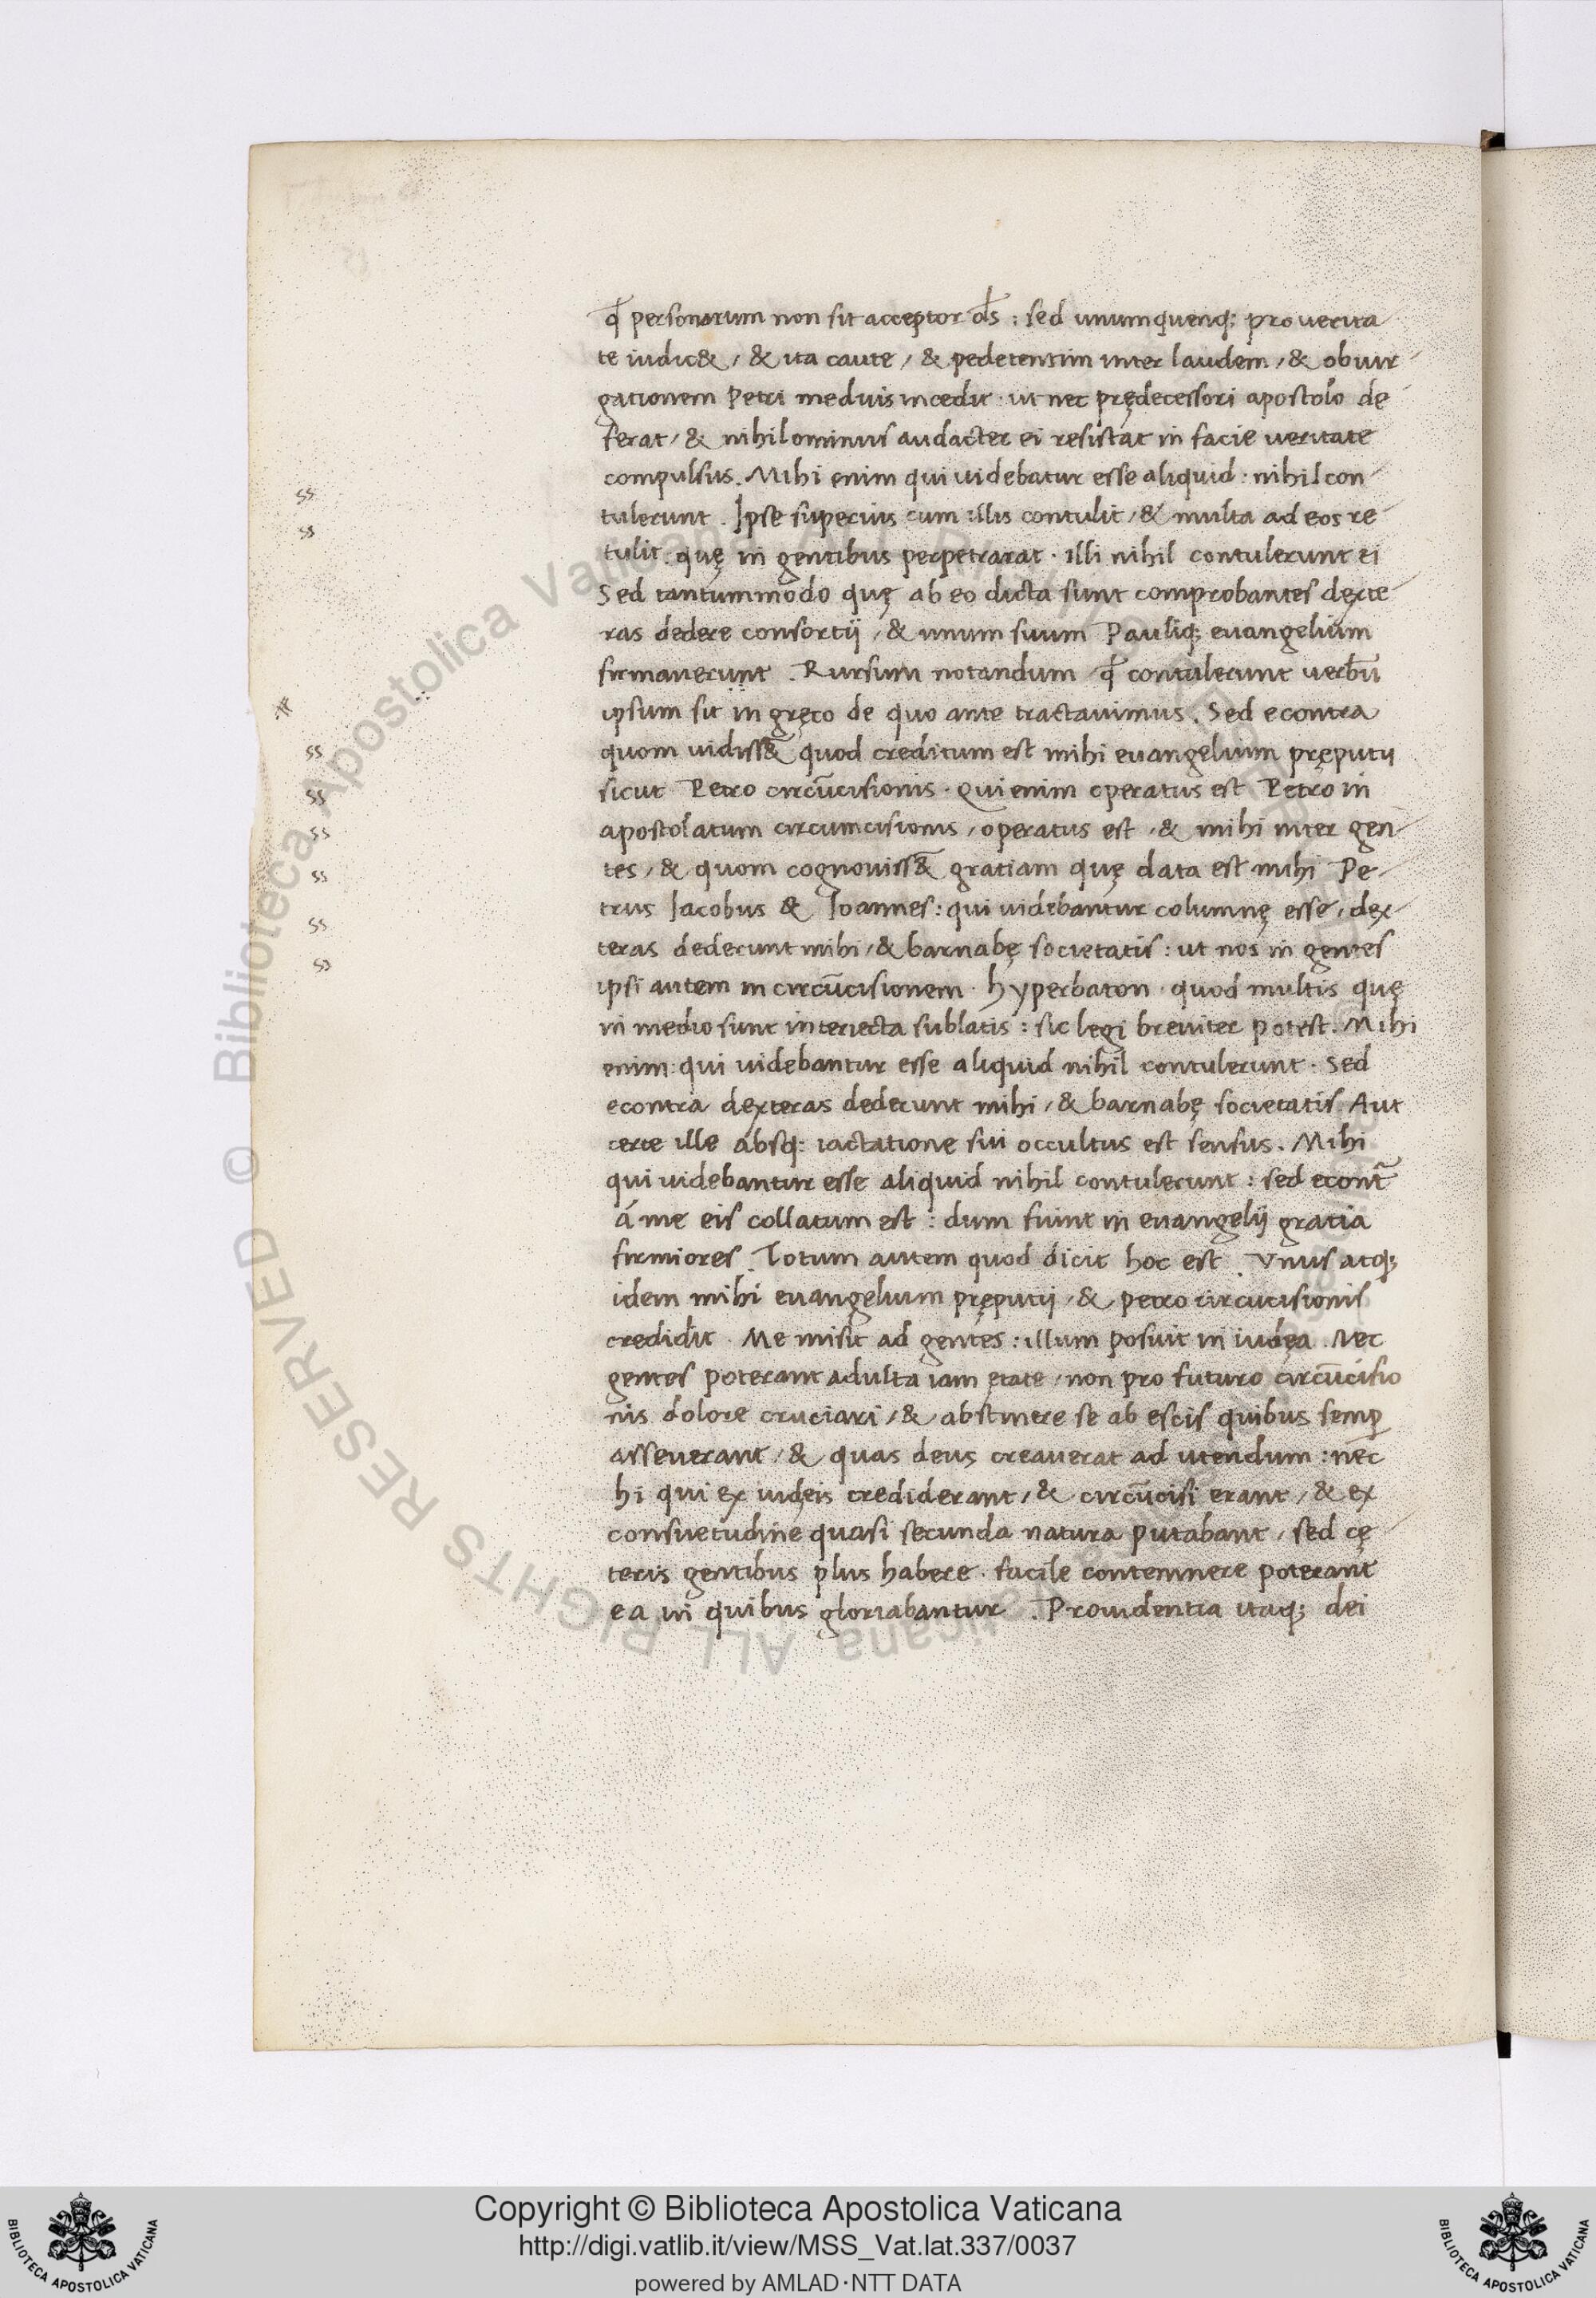 qđ personarum non sit acceptor ds̄ : sed unumquenq; pro uerita
te iudic& / & ita caute / & pedetentim inter laudem / & obiur
gationem Petri medius incedit · ut nec prędecessori apostolo dę
ferat / & nihilominus audacter ei resistat in facie ueritate
compulsus . Mihi enim qui uidebatur esse aliquid · nihil con
tulerunt . Ipse superius cum illis contulit / & multa ad eos re
tulit : quę in gentibus perpetrarat · illi nihil contulerunt ei
Sed tantummodo quę ab eo dicta sunt comprobantes dexte
ras dedere consortij / & unum suum Pauliq; euangelium
firmauerunt . Rursum notandum / qđ contulerunt uerbū
ipsum sit in gręco de quo ante tractauimus . Sed econtra
quom uidiss& quod creditum est mihi euangelium pręputij
sicut Petro circūcisionis · Qui enim operatus est Petro in
apostolatum circumcisionis / operatus est / & mihi inter gen
tes / & quom cognouiss& gratiam quę data est mihi Pe
trus Iacobus & Ioannes : qui uidebantur columnę esse / dex
teras dederunt mihi / & barnabę societatis : ut nos in gentes
ipsi autem in circūcisionem · hyperbaton · quod multis quę
in medio sunt interiecta sublatis : sic legi breuiter potest . Mihi
enim : qui uidebantur esse aliquid nihil contulerunt · Sed
econtra dexteras dederunt mihi / & barnabę societatis . Aut
certe ille absq; iactatione sui occultus est sensus . Mihi
qui uidebantur esse aliquid nihil contulerunt : sed econt̄
á me eis collatum est : dum fiunt in euangelij gratia
firmiores . Totum autem quod dicit hoc est . Vnus atq;
idem mihi euangelium pręputij / & petro circucisionis
credidit . Me misit ad gentes : illum posuit in iudęa . Nec
gentes poterant adulta iam ętate / non pro futuro circūcisio
nis dolore cruciari / & abstinere se ab escis quibus semp
asseuerant / & quas deus creauerat ad utendum : nec
hi qui ex iudęis crediderant / & circūcisi erant / & ex
consuetudine quasi secunda natura putabant / sed cę
teris gentibus plus habere · facile contemnere poterant
ea in quibus gloriabantur . Prouidentia itaq; dei
ss
ss
ss
ss
ss
ss
ss
ss
© Biblioteca Apostolica Vaticana ALL RIGHTS RESERVED
Copyright © Biblioteca Apostolica Vaticana
http://digi.vatlib.it/view/MSS_Vat.lat.337/0037
powered by AMLAD·NTT DATA
BIBLIOTECA APOSTOLICA VATICANA
BIBLIOTECA APOSTOLICA VATICANA